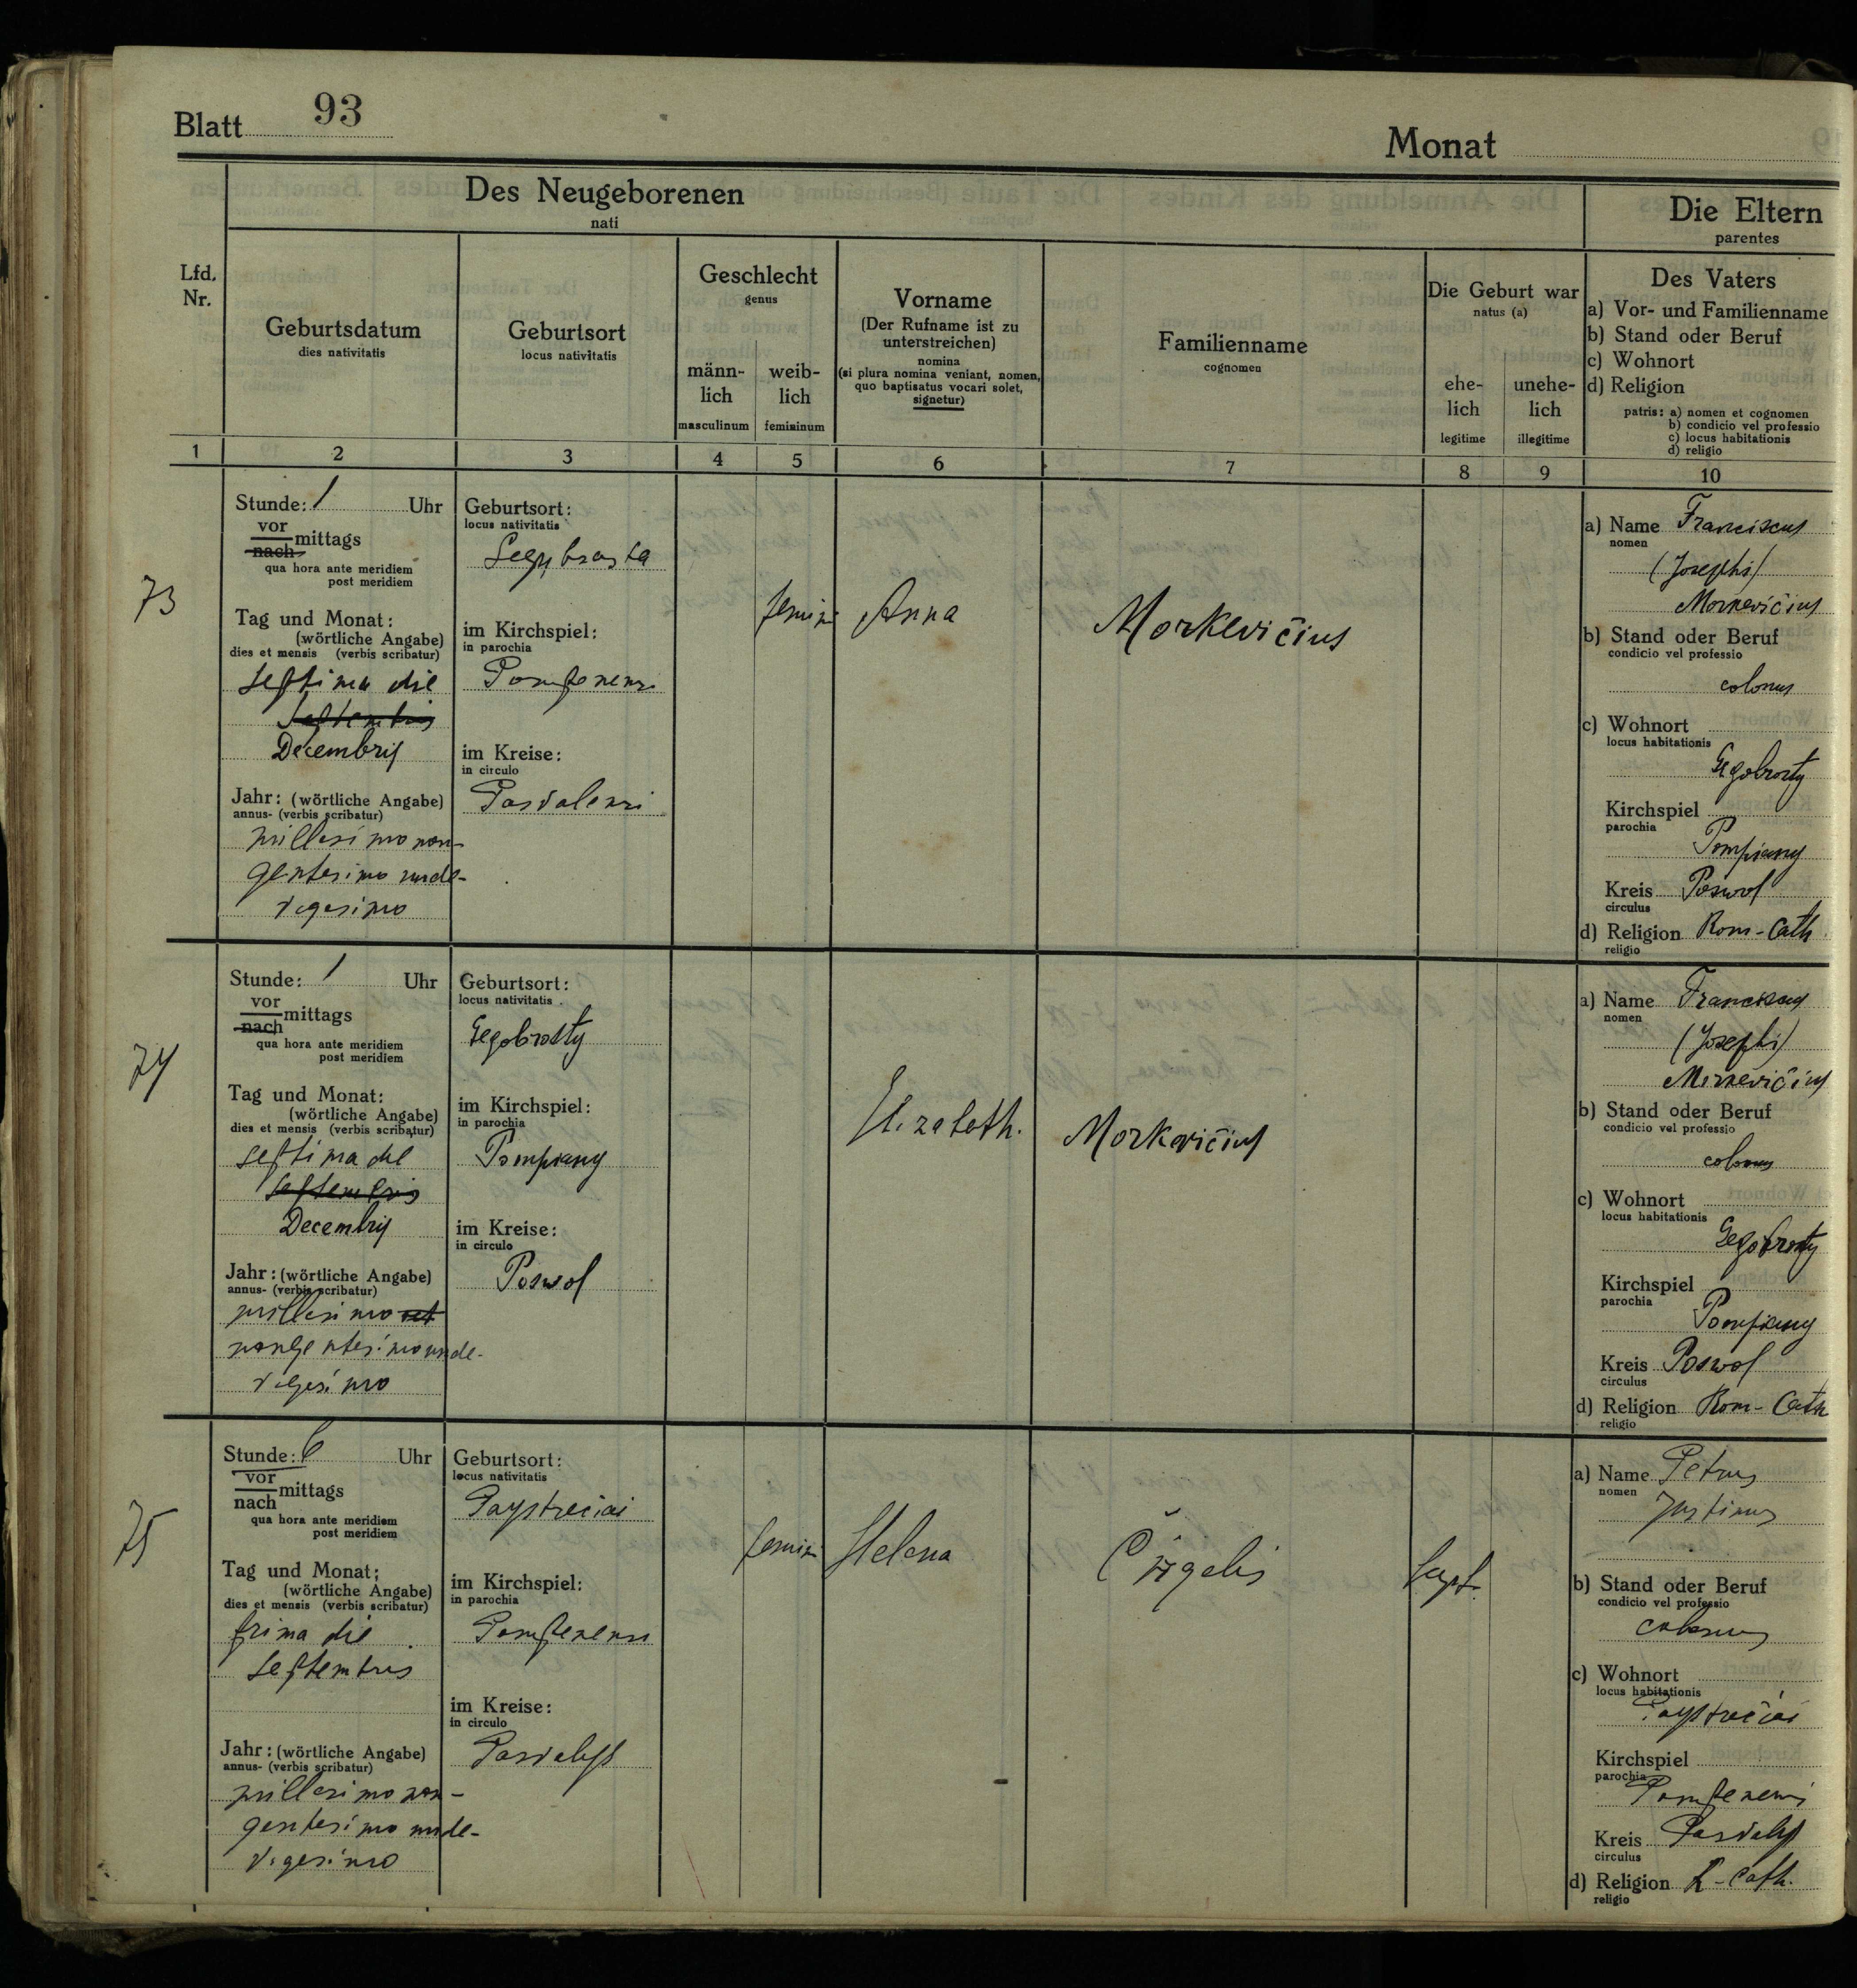 Blatt 93
Monat
Des Neugeborenen
nati
Die Eltern
parentes
Lfd.
Nr.
Geburtsdatum
dies nativitatis
Geburtsort
locus nativitatis
Geschlecht
genus
männ-
lich
masculinum
weib-
lich
femininum
Vorname
(Der Rufname ist zu
unterstreichen)
nomina
(si plura nomina veniant, nomen,
quo baptisatus vocari solet,
signetur)
Familienname
cognomen
Die Geburt war
natus (a)
ehe-
lich
legitime
unehe-
lich
illegitime
Des Vaters
a) Vor- und Familienname
b) Stand oder Beruf
c) Wohnort
d) Religion
patris: a) nomen et cognomen
b) condicio vel professio
c) locus habitationis
d) religio
1 2 3 4 5 6 7 8 9 10
73
Stunde: 1 Uhr
vor
nach mittags
qua hora ante meridiem
post meridiem
Tag und Monat:
(wörtliche Angabe)
dies et mensis (verbis scribatur)
septima die
Septembris
Decembris
Jahr: (wörtliche Angabe)
annus- (verbis scribatur)
millesimo non-
gentesimo unde-
vigesimo
Geburtsort:
locus nativitatis
im Kirchspiel:
in parochia
im Kreise:
in circulo
Anna
Morkevičius
a) Name Franciscus
nomen
(Josephi)
Morkevičius
b) Stand oder Beruf
condicio vel professio
colonus
c) Wohnort
locus habitationis
Gegobrosty
Kirchspiel
parochia
Pompiany
Kreis Poswol
circulus
d) Religion Rom-Cath
religio
74
Stunde: 1 Uhr
vor
nach mittags
qua hora ante meridiem
post meridiem
Tag und Monat:
(wörtliche Angabe)
dies et mensis (verbis scribatur)
septima die
Septembris
Decembris
Jahr: (wörtliche Angabe)
annus- (verbis scribatur)
millesimo
nongentesimo unde-
vigesimo
Geburtsort:
locus nativitatis
Gegobrosty
im Kirchspiel:
in parochia
Pompiany
im Kreise:
in circulo
Poswol
Elizabeth.
Morkevičius
a) Name Franciscus
nomen
(Josephi)
Morkevičius
b) Stand oder Beruf
condicio vel professio
colonus
c) Wohnort
locus habitationis
Gegobrosty
Kirchspiel
parochia
Pompiany
Kreis Poswol
circulus
d) Religion Rom-Cath
religio
75
Stunde: 6 Uhr
vor
nach mittags
qua hora ante meridiem
post meridiem
Tag und Monat:
(wörtliche Angabe)
dies et mensis (verbis scribatur)
prima die
septembris
Jahr: (wörtliche Angabe)
annus- (verbis scribatur)
millesimo non-
gentesimo unde-
vigesimo
Geburtsort:
locus nativitatis
Paystrečiai
im Kirchspiel:
in parochia
im Kreise:
in circulo
Helena
a) Name Petrus
nomen
Justinus
b) Stand oder Beruf
condicio vel professio
colonus
c) Wohnort
locus habitationis
Paystrečiai
Kirchspiel
parochia
Kreis
circulus
d) Religion R-Cath.
religio